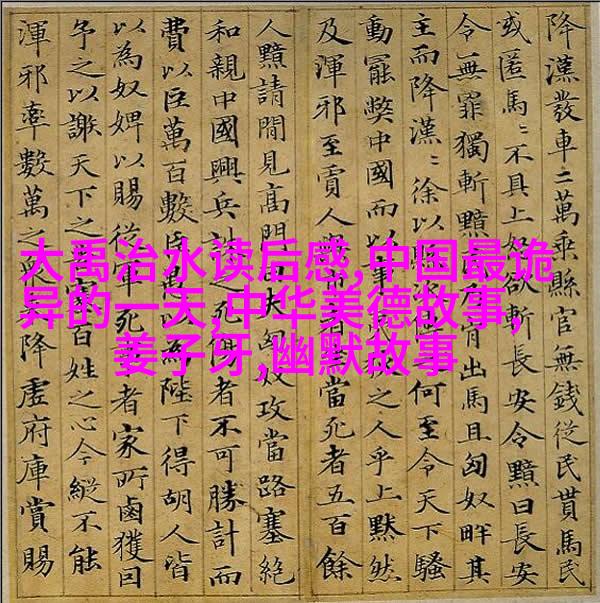 降漢發車二萬乘縣官無錢從民貰馬民
或匿馬〻不具上怒欲斬長安令黯曰長安
令無罪獨斬黯肯出馬且匈奴畔其
主而降漢〻徐以縣何至令天下騷
動罷獘中國而以事之人乎上默然
及渾邪至賈人當死者五百餘
人黯請間見高門曰夫匈奴攻當路塞絕
和親中國興兵誅之死傷者不可勝計而
費以巨萬百數臣愚以為陛下得胡人皆
以為奴婢以賜從軍死者家所鹵獲因
予之以謝天下之百姓之心今縱不能
渾邪率數萬之衆降虛府庫賞賜
大禹治水读后感,中国最诡
异的一天,中华美德故事,
姜子牙,幽默故事